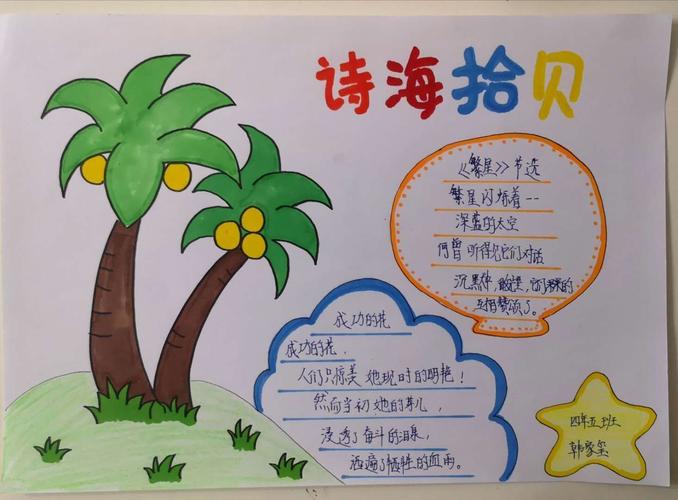 诗海拾贝
《繁星》节选
繁星闪烁着--
深蓝的太空
何曾听得见它们对话
沉默中,微光里,它们深深的
互相赞颂了。
成功的花
成功的花,
人们只惊羡她现时的明艳!
然而当初她的芽儿,
浸透了奋斗的泪泉,
洒遍了牺牲的血雨。
四年五班
韩